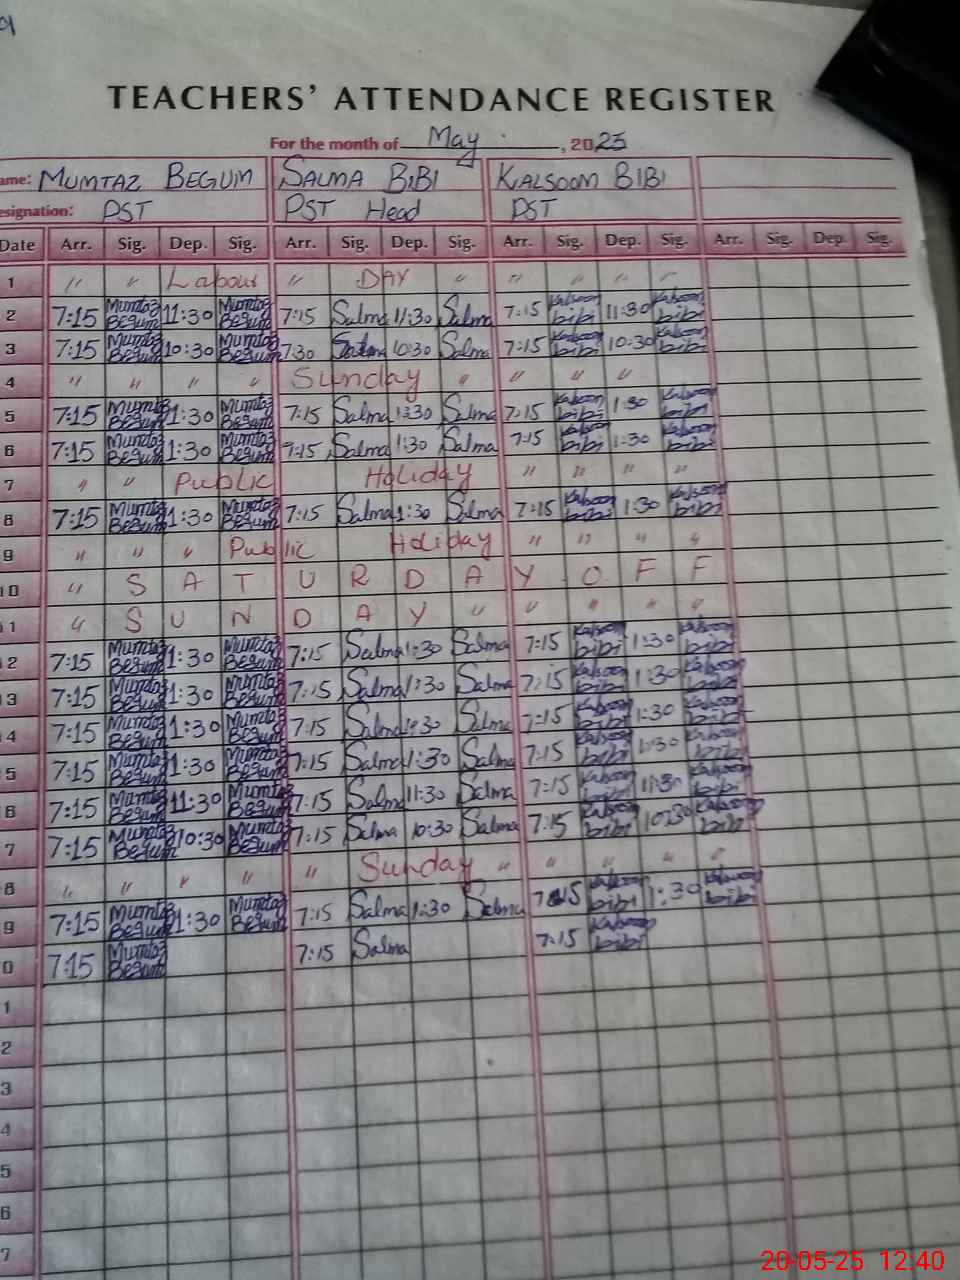 TEACHERS' ATTENDANCE REGISTER
For the month of May, 2025
ame: MUMTAZ BEGUM SALMA BIBI KALSOOM BIBI
esignation: PST PST Head PST
Date Arr. Sig. Dep. Sig. Arr. Sig. Dep. Sig. Arr. Sig. Dep. Sig. Arr. Sig. Dep. Sig.
1 " " Labour " DAY " " " " "
2 7:15 Mumtaz Begum 11:30 Mumtaz Begum 7:15 Salma 11:30 Salma 7:15 Kalsoom bibi 11:30 Kalsoom bibi
3 7:15 Mumtaz Begum 10:30 Mumtaz Begum 7:30 Salma 10:30 Salma 7:15 Kalsoom bibi 10:30 Kalsoom bibi
4 " " " " Sunday " " " "
5 7:15 Mumtaz Begum 1:30 Mumtaz Begum 7:15 Salma 1:30 Salma 7:15 Kalsoom bibi 1:30 Kalsoom bibi
6 7:15 Mumtaz Begum 1:30 Mumtaz Begum 7:15 Salma 1:30 Salma 7:15 Kalsoom bibi 1:30 Kalsoom bibi
7 " " Public Holiday " " " "
8 7:15 Mumtaz Begum 1:30 Mumtaz Begum 7:15 Salma 1:30 Salma 7:15 Kalsoom bibi 1:30 Kalsoom bibi
9 " " " Public Holiday " " " "
0 " S A T U R D A Y O F F
1 " S U N D A Y " " " " "
2 7:15 Mumtaz Begum 1:30 Mumtaz Begum 7:15 Salma 1:30 Salma 7:15 Kalsoom bibi 1:30 Kalsoom bibi
3 7:15 Mumtaz Begum 1:30 Mumtaz Begum 7:15 Salma 1:30 Salma 7:15 Kalsoom bibi 1:30 Kalsoom bibi
4 7:15 Mumtaz Begum 1:30 Mumtaz Begum 7:15 Salma 1:30 Salma 7:15 Kalsoom bibi 1:30 Kalsoom bibi
5 7:15 Mumtaz Begum 1:30 Mumtaz Begum 7:15 Salma 1:30 Salma 7:15 Kalsoom bibi 1:30 Kalsoom bibi
6 7:15 Mumtaz Begum 11:30 Mumtaz Begum 7:15 Salma 11:30 Salma 7:15 Kalsoom bibi 11:30 Kalsoom bibi
7 7:15 Mumtaz Begum 10:30 Mumtaz Begum 7:15 Salma 10:30 Salma 7:15 Kalsoom bibi 10:30 Kalsoom bibi
8 " " " " " Sunday " " " " "
9 7:15 Mumtaz Begum 1:30 Mumtaz Begum 7:15 Salma 1:30 Salma 7:15 Kalsoom bibi 1:30 Kalsoom bibi
0 7:15 Mumtaz Begum 7:15 Salma 7:15 Kalsoom bibi
1
2
3
4
5
6
7
20-05-25 12:40